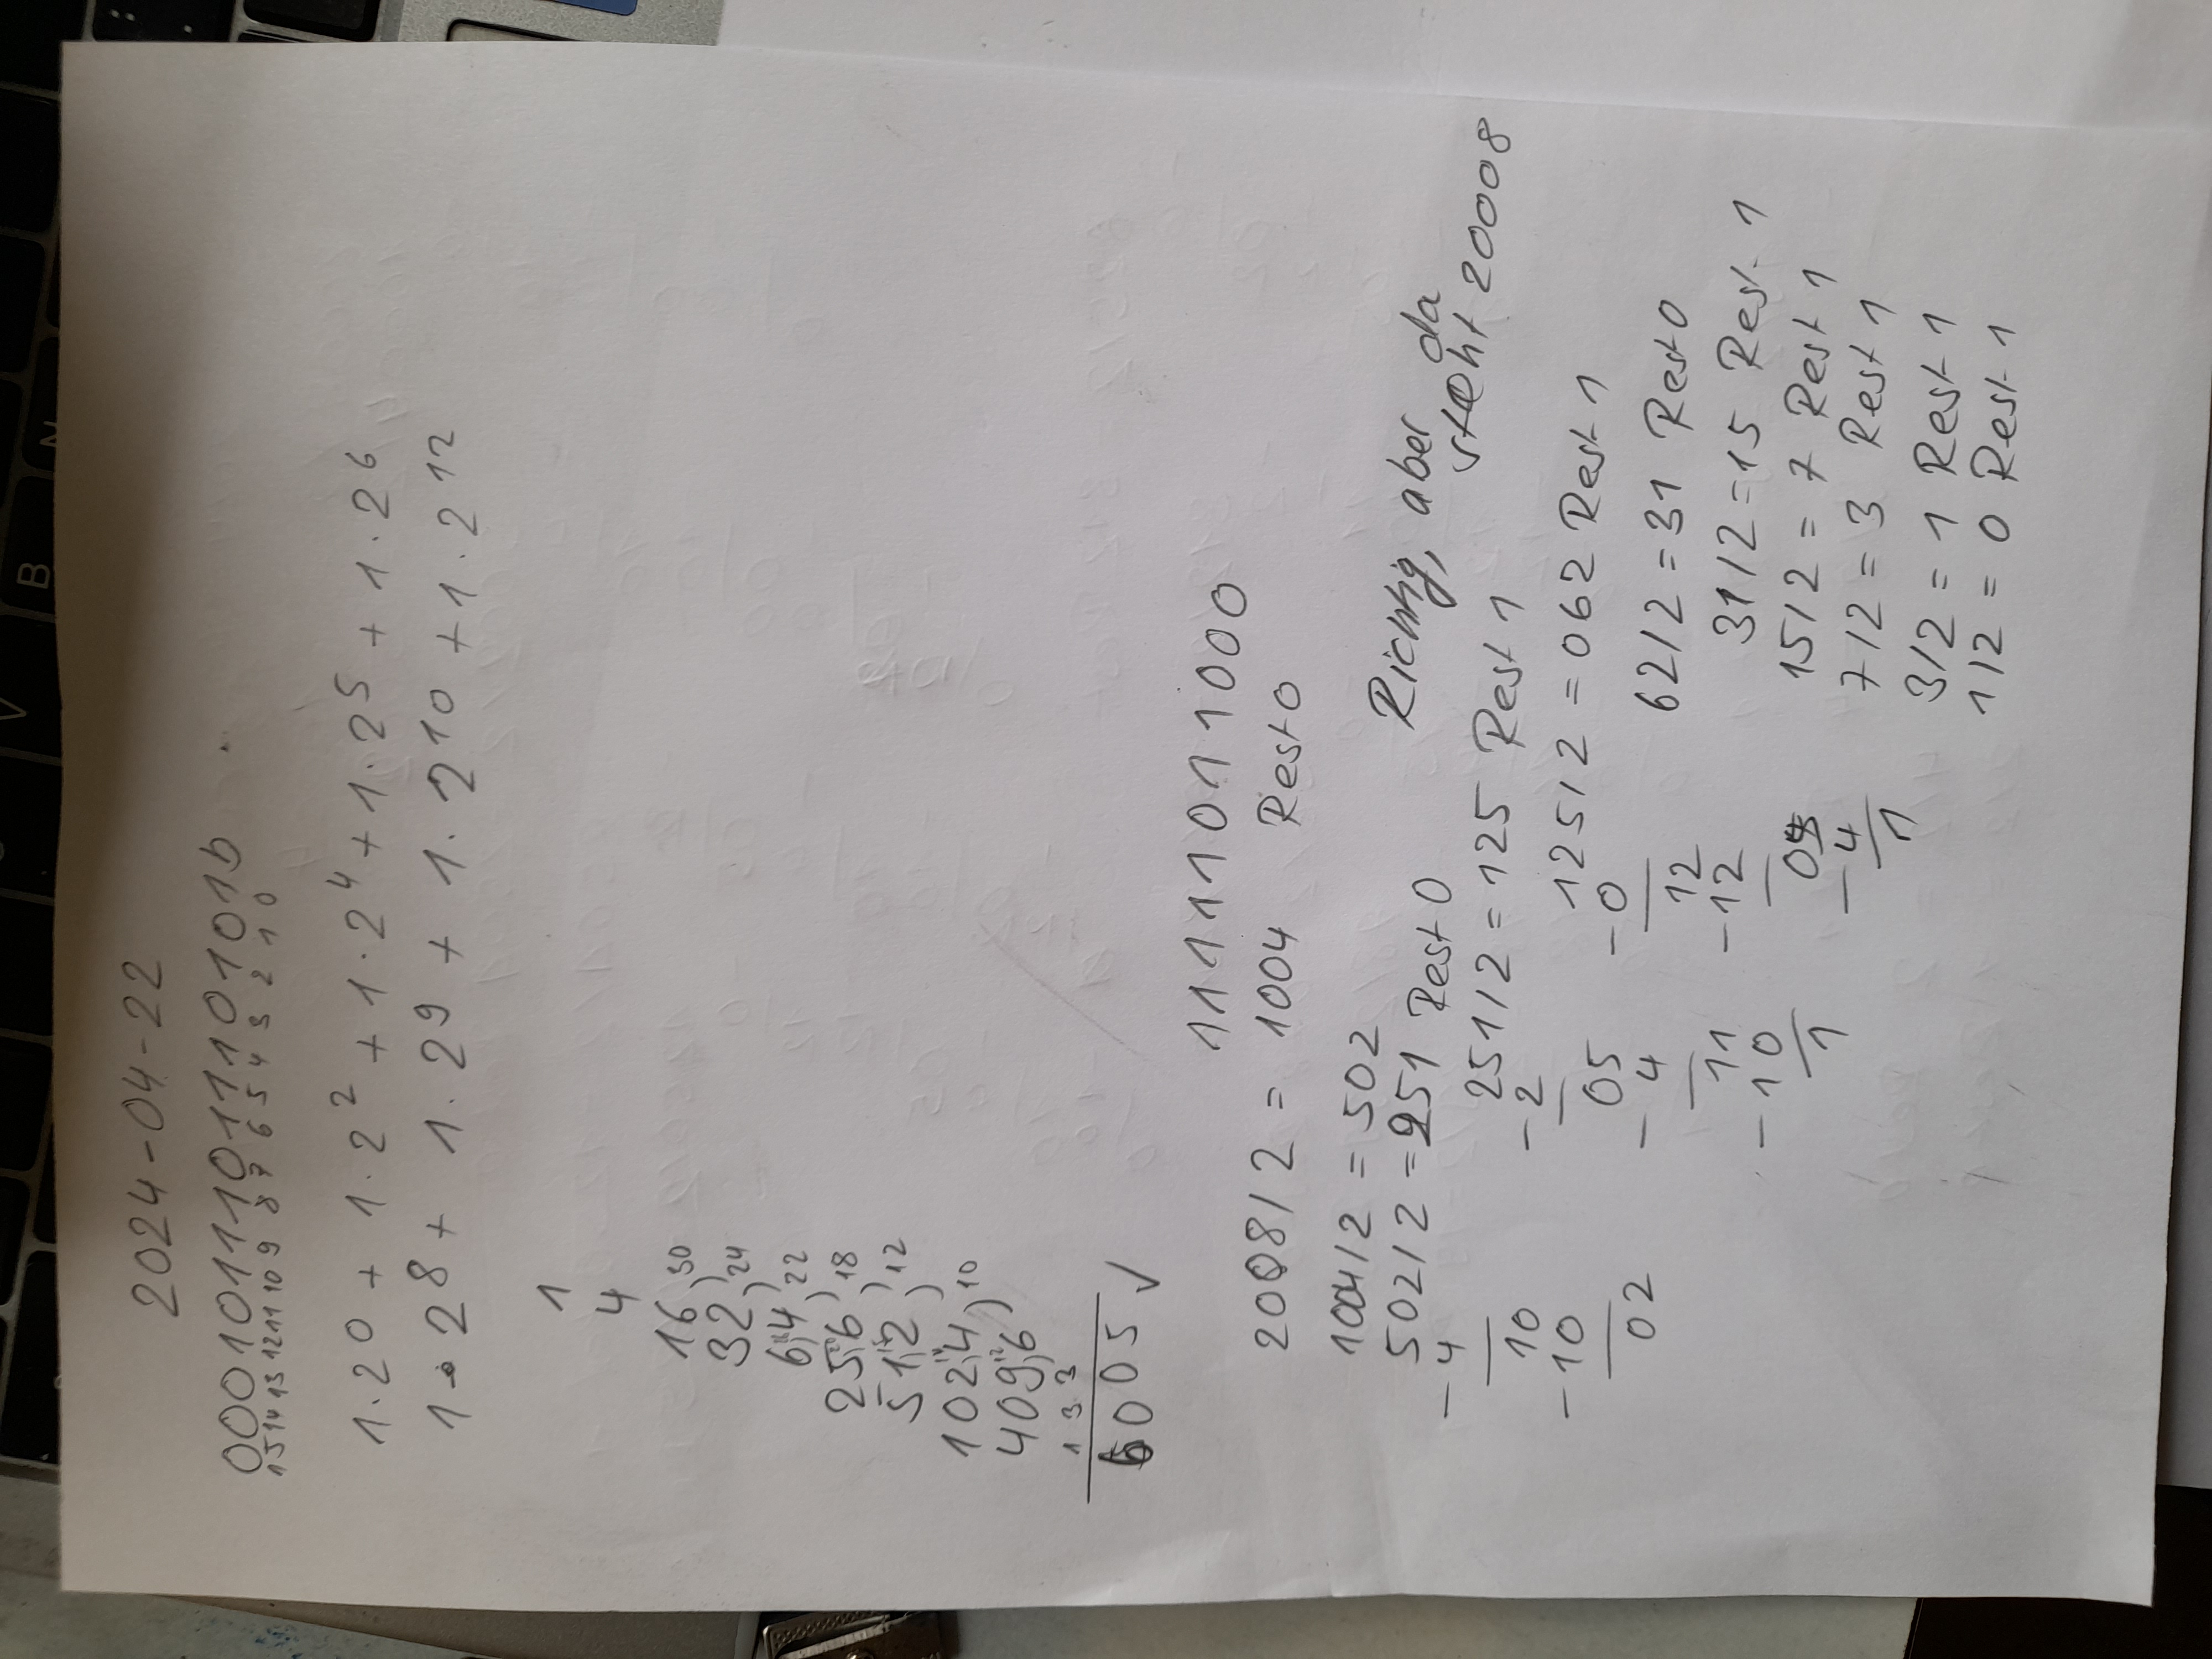 V B N
2024-04-22
0001011101110101b
15 14 13 12 11 10 9 8 7 6 5 4 3 2 1 0
1·2⁰ + 1·2² + 1·2⁴ + 1·2⁵ + 1·2⁶
1·2⁸ + 1·2⁹ + 1·2¹⁰ + 1·2¹²
1
4
16 30
32 24
64 22
256 18
512 12
1024 10
4096
1 3 3
6005 ✓
11111011000
2008/2 = 1004 Rest 0
1004/2 = 502
502/2 = 251 Rest 0
- 4
10
- 10
02
251/2 = 125 Rest 1
- 2
05
- 4
11
- 10
1
125/2 = 062 Rest 1
- 0
12
- 12
05
- 4
1
62/2 = 31 Rest 0
31/2 = 15 Rest 1
15/2 = 7 Rest 1
7/2 = 3 Rest 1
3/2 = 1 Rest 1
1/2 = 0 Rest 1
Richtig, aber da
steht 20008